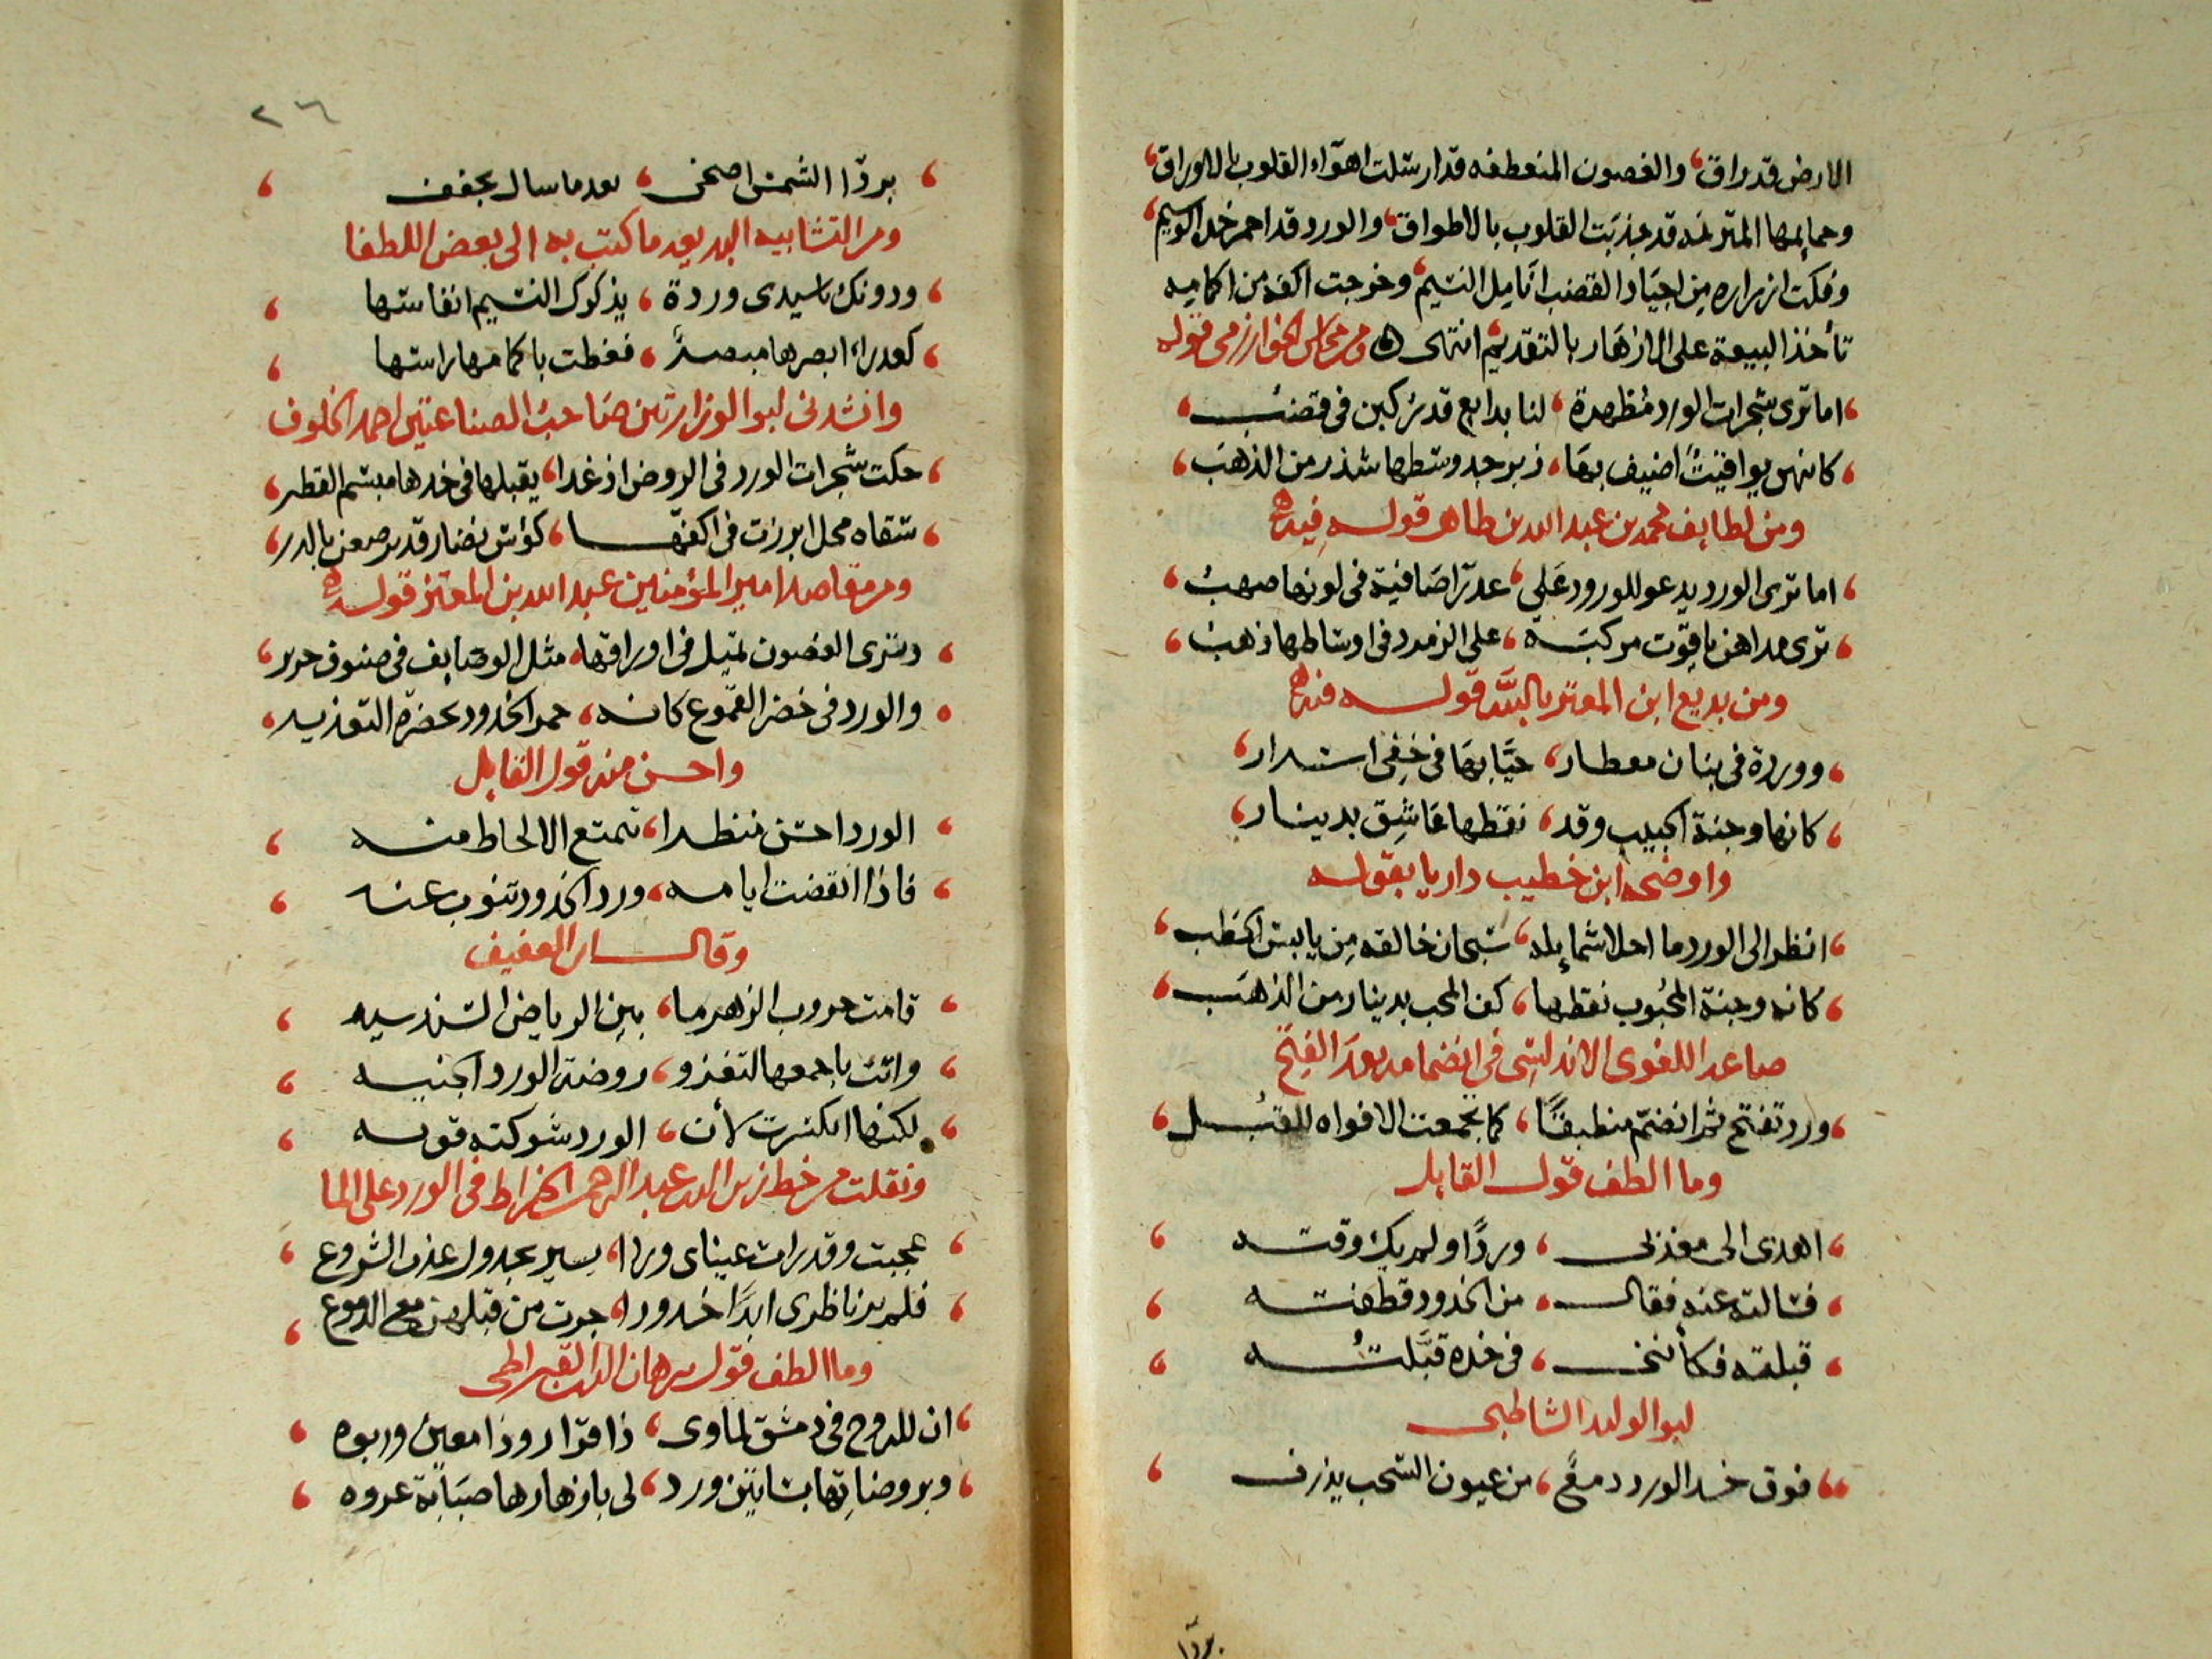 الارض قد راق، والغصون المنعطفه قد ارسلت اهوآء القلوب بالاوراق،
وحمايمها المترنمه قد جذبت القلوب بالاطواق، والورد قد احمر خده الوسيم،
وفكت ازراره من اجياد القضب انامل النسيم، وخرجت اكفه من اكمامه
تأخذ البيعة على الازهار بالتقديم، انتهى ومن محاسن الخوارزمى قوله
، اما ترى شجرات الورد مظهرة ، لنا بدايع قد ركبن فى قضب ،
، كانهن يواقيت اضيف بها ، زبرجد وسطها شذر من الذهب ،
ومن لطايف محمد بن عبد الله بن طاهر قوله فيه
، اما ترى الورد يدعو للورود على ، عذرا صافية فى لونها صهب ،
، ترى مداهن ياقوت مركبة ، على الزمرد فى اوساطها ذهب ،
ومن بديع ابن المعتز بالله قوله فيه
، ووردة فى بنان معطار ، حيا بها فى خفى اسرار ،
، كانها وجنة الحبيب وقد ، نقطها عاشق بدينار ،
واوضحه ابن خطيب داريا بقوله
، انظر الى الورد ما احلا شمايله ، سبحان خالقه من يابس الحطب ،
، كانه وجنة المحبوب نقطها ، كف المحب بدينار من الذهب ،
صاعد اللغوى الاندلسى فى انضمامه بعد الفتح
، ورد تفتح ثم انضم منطبقا ، كما تجمعت الافواه للقبل ،
وما الطف قول القايل
، اهدى الى معذبى ، وردًا ولم يك وقته ،
، فسالته عنه فقال ، من الخدود قطفته ،
، قبلته فكأننى ، فى خده قبلته ،
ابو الوليد الشاطبى
، فوق خد الورد دمع ، من عيون السحب يذرف ،
بردا
٢٦
، بردا الشمس اضحى ، بعد ما سال يجفف ،
ومن التشابيه البديعه ما كتب به الى بعض اللطفا
، ودونك يا سيدى وردة ، يذكرك النسيم انفاسها ،
، كعدراء ابصرها مبصر ، فغطت باكمامها راسها ،
وانشدنى ابو الوزارتين صاحب الصناعتين احمد الخلوف
، حكت شجرات الورد فى الروض اذ غدا ، يقبلها فى خدها مبسم القطر ،
، سقاه محل ابرزت فى اكفها ، كؤس نضار قد رصعن بالدر ،
ومن مقاصد امير المؤمنين عبد الله بن المعتز قوله
، وترى الغصون تميل فى اوراقها ، مثل الوصايف فى صنوف حرير ،
، والورد فى خضر القموع كانه ، حمر الخدود بخضرة التعذير ،
واحسن منه قول القايل
، الورد احسن منظرا ، تمتع الالحاظ منه ،
، فاذا انقضت ايامه ، ورد الخدود تنوب عنه ،
وقال ابن العفيف
، قامت حروب الزهر ما ، بين الرياض السندسيه ،
، واتت باجمعها لتغزو ، روضة الورد الجنيه ،
، لكنها انكسرت لأن ، الورد شوكته قويه ،
ونقلت من خط زين الدين عبد الرحمن الخراط فى الورد على الما
، عجبت وقد رات عيناى وردا ، يسير بجدول عذب الشروع ،
، فلم ير ناظرى ابدًا خدودا ، جرت من قبلهن مع الدموع ،
وما الطف قول برهان الدين القيراطى
، ان للروح فى دمشق لماوى ، ذا قرار وذا معين وربوه ،
، وبروضاتها بساتين ورد ، لى بازهارها صبابة عروه ،